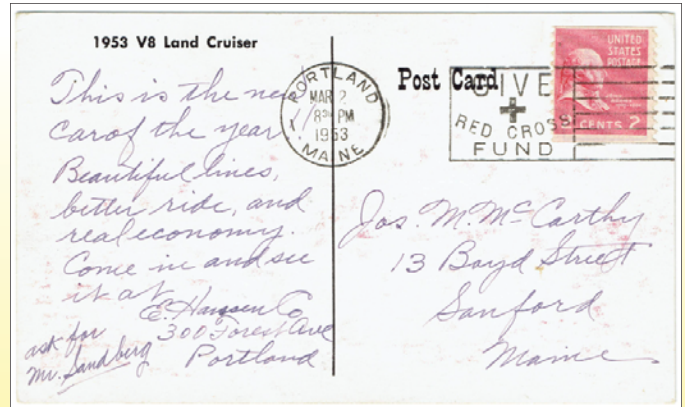 1953 V8 Land Cruiser
This is the new
car of the year.
Beautiful lines,
better ride, and
real economy.
Come in and see
it at
E. Hanson Co
300 Forest Ave
Portland
ask for
Mr. Sandberg
PORTLAND
MAR 2
8 30 PM
1953
MAINE
Post Card
GIVE
RED CROSS
FUND
UNITED
STATES
POSTAGE
2 CENTS 2
Jos. M. McCarthy
13 Boyd Street
Sanford
Maine